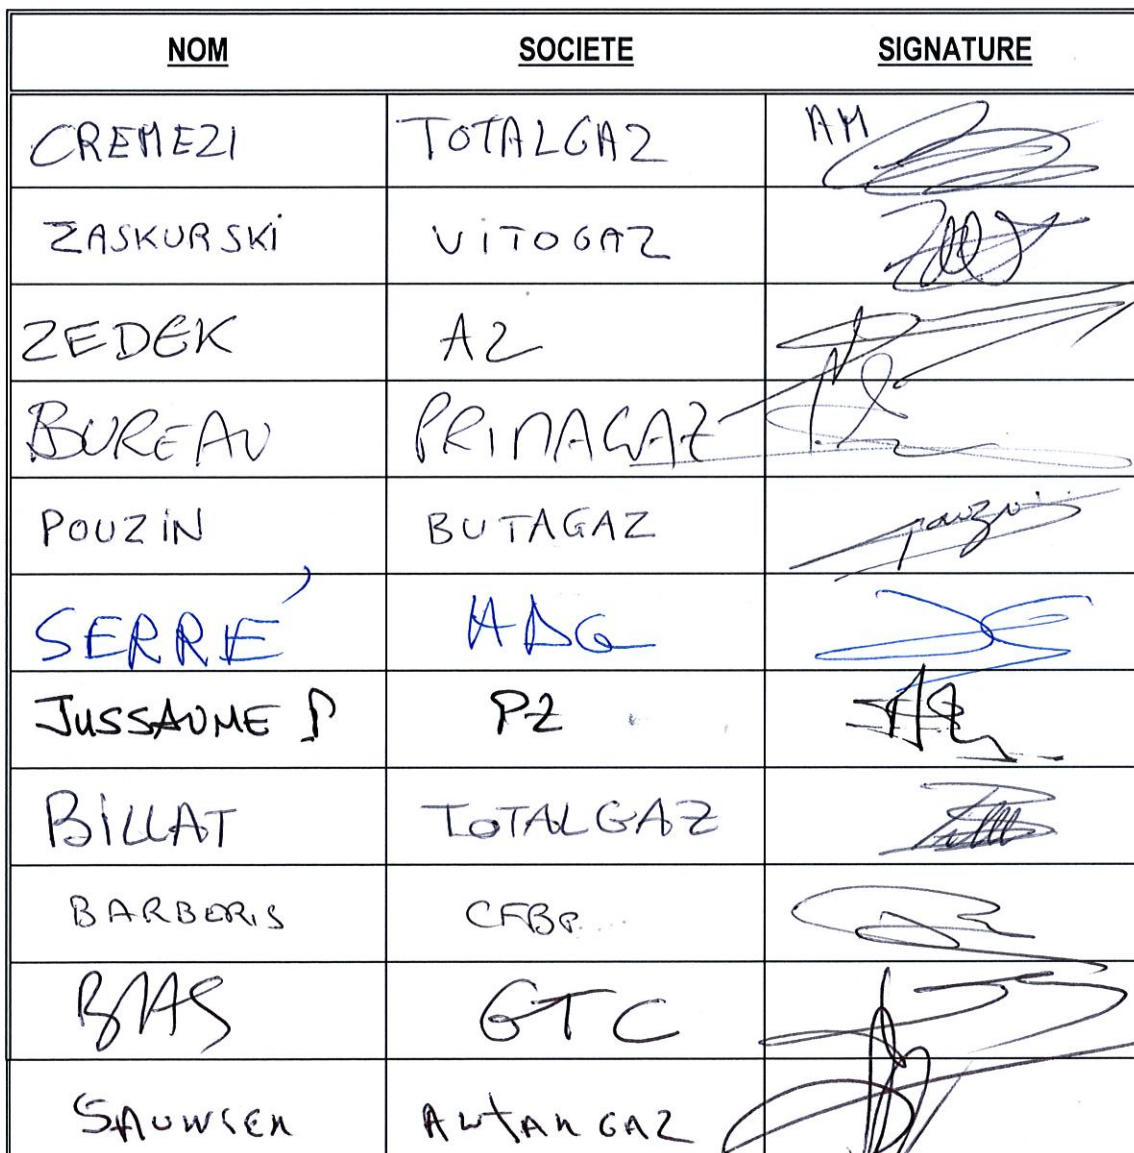 NOM SOCIETE SIGNATURE
CREMEZI TOTALGAZ AM
ZASKURSKI VITOGAZ
ZEDEK AZ
BUREAU PRIMAGAZ
POUZIN BUTAGAZ pouzin
SERRÉ
JUSSAUME P PZ
BILLAT TOTALGAZ
BARBERIS CFBP
GTC
GAZ